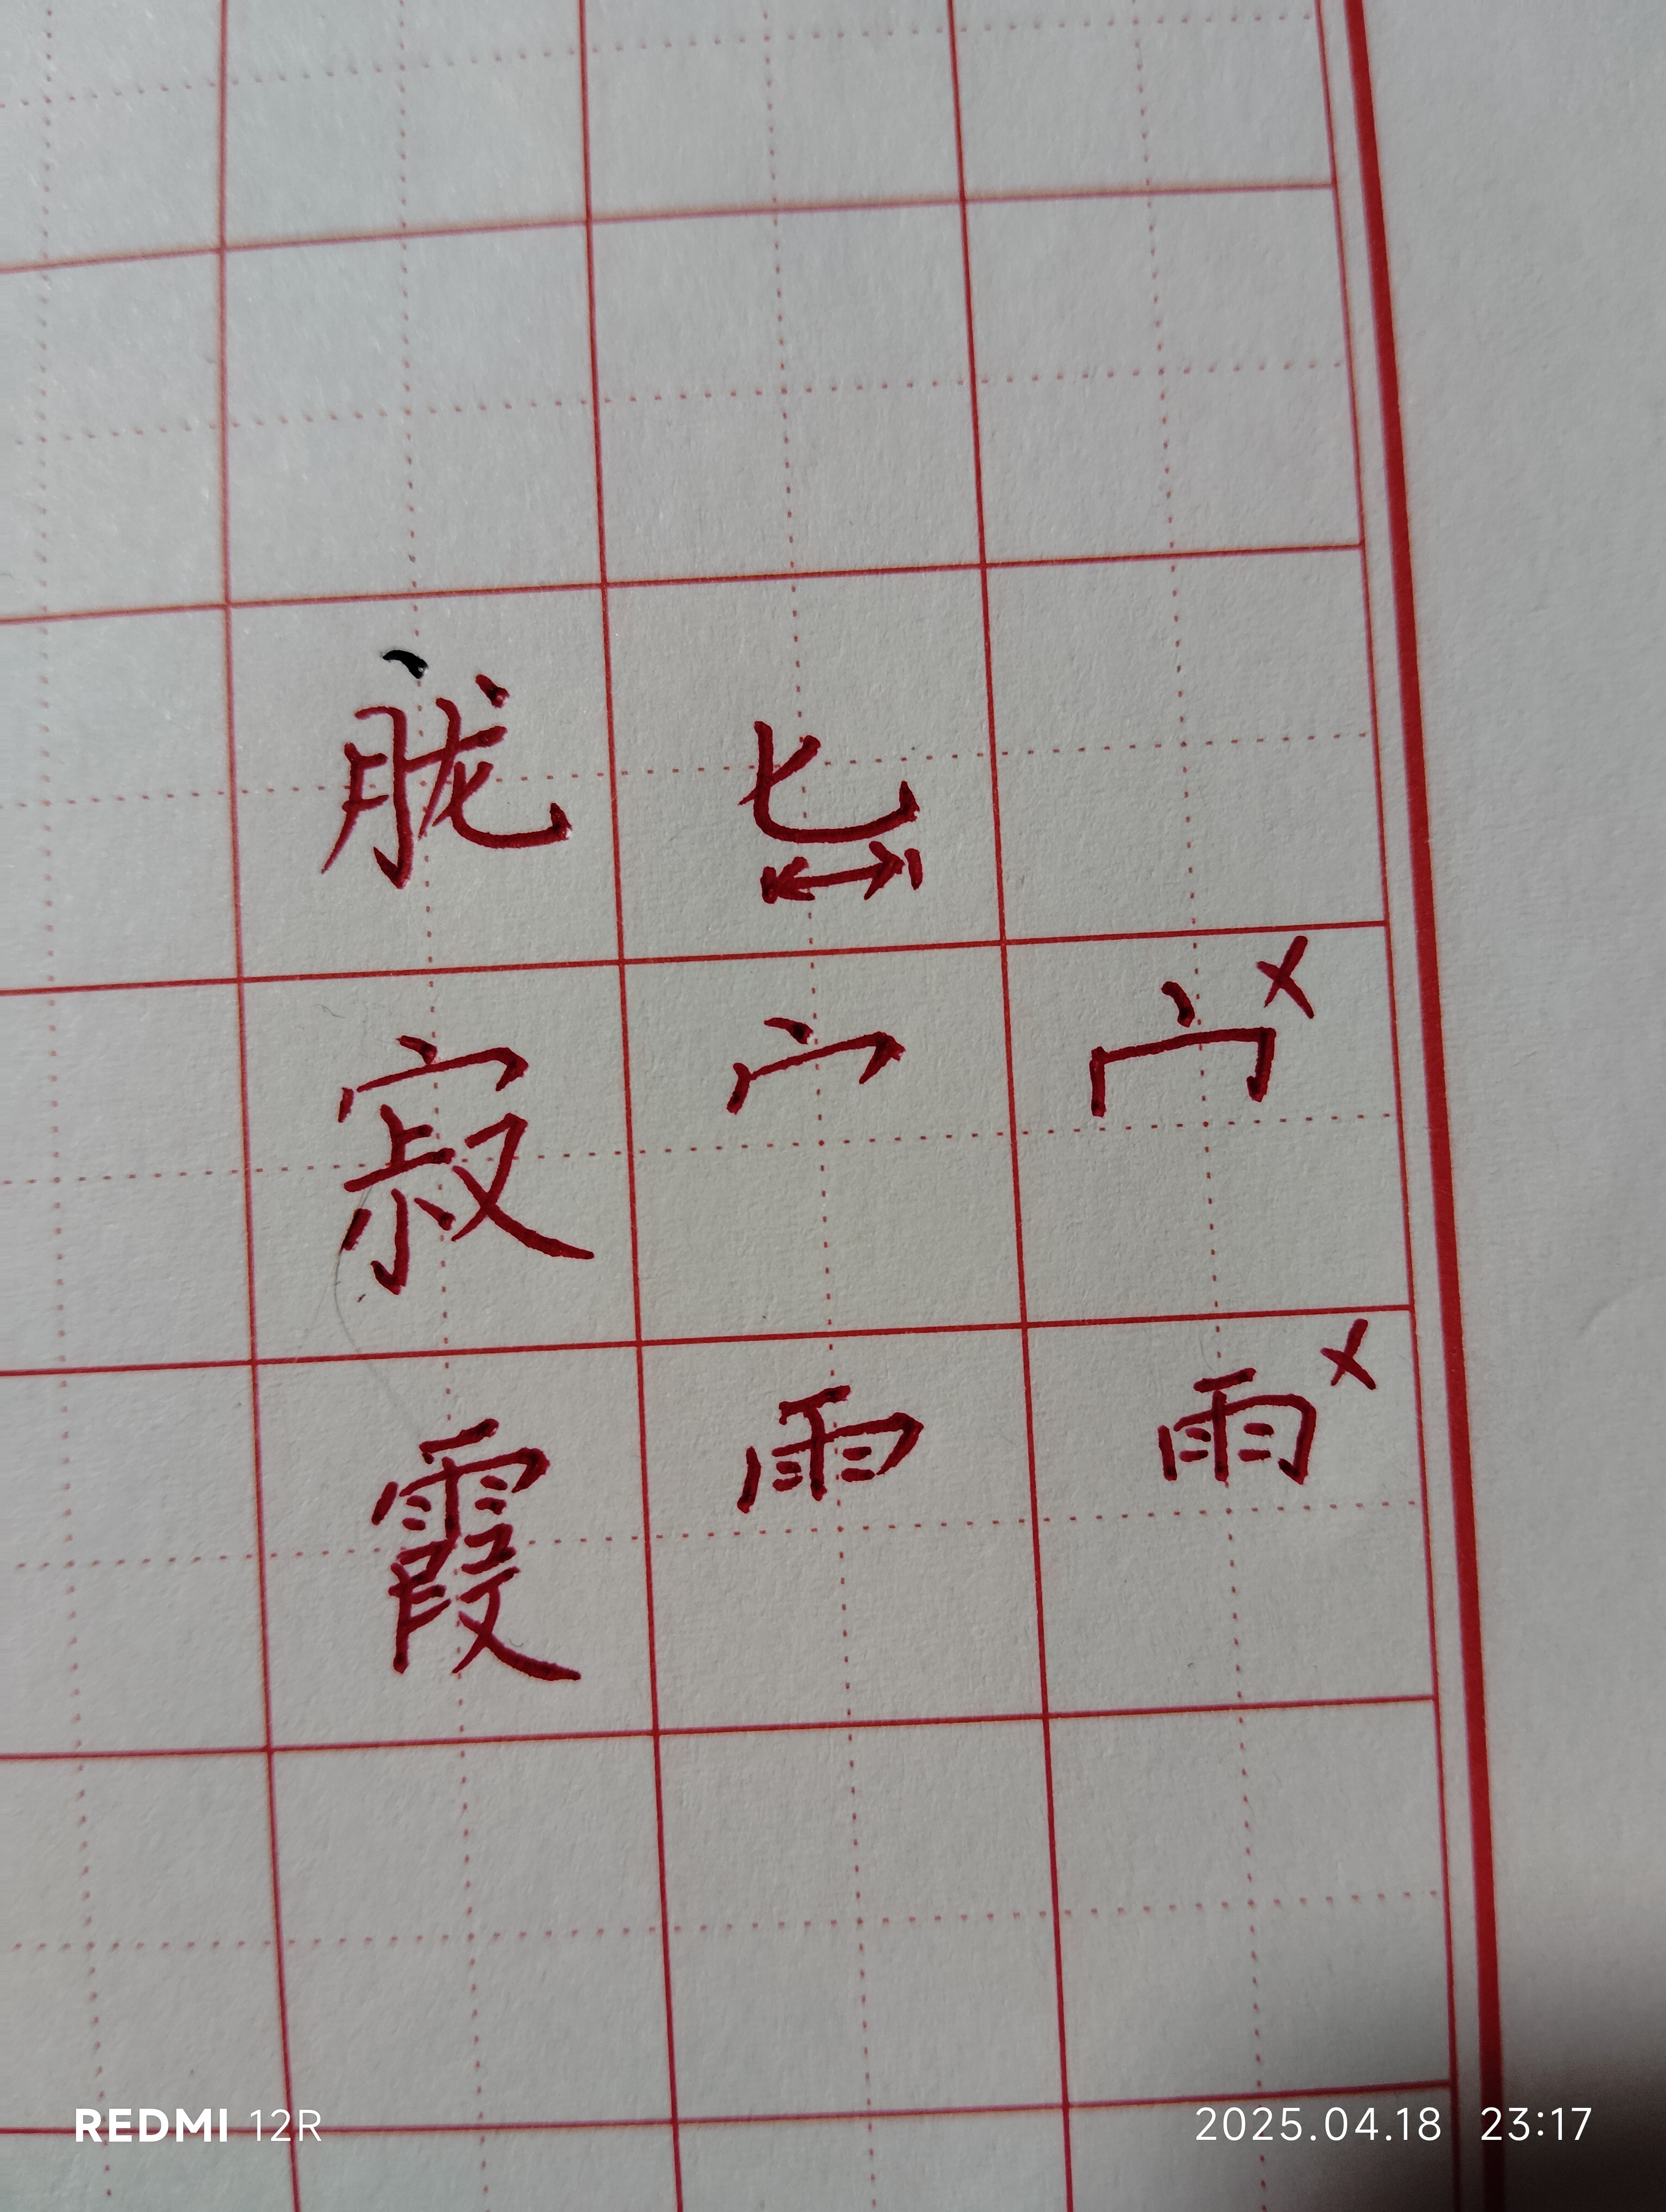 胧 匕
寂 宀 宀 ×
霞 雨 雨 ×
REDMI 12R
2025.04.18 23:17